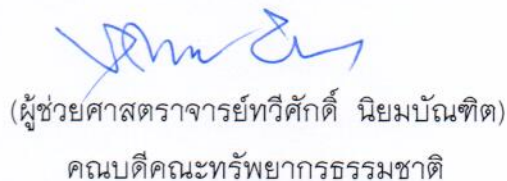 (ผู้ช่วยศาสตราจารย์ทวีศักดิ์ นิยมบัณฑิต)
คณบดีคณะทรัพยากรธรรมชาติ